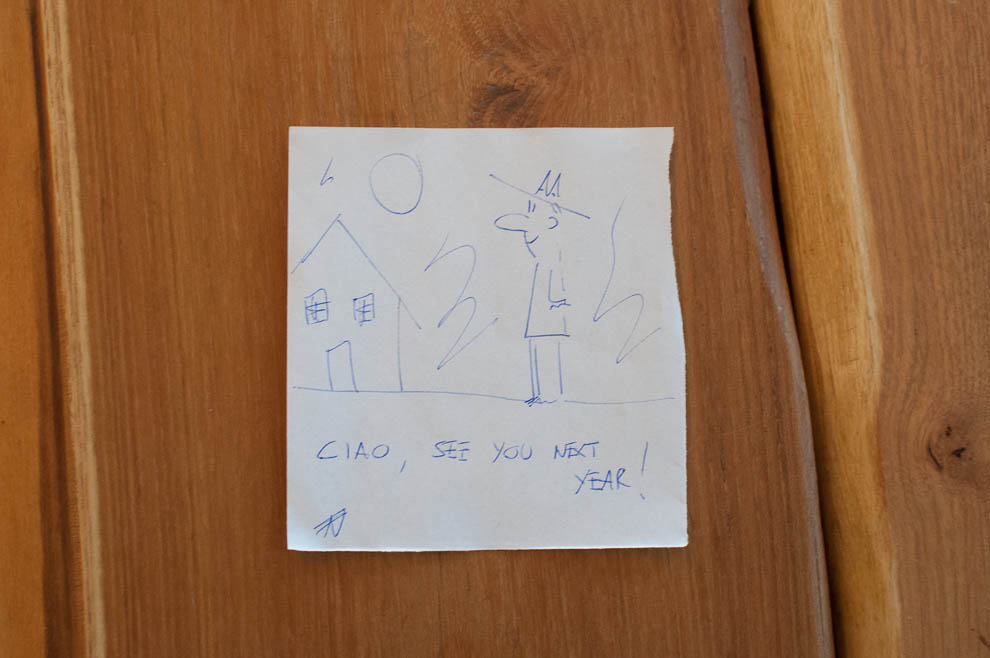 CIAO, SEE YOU NEXT
YEAR!